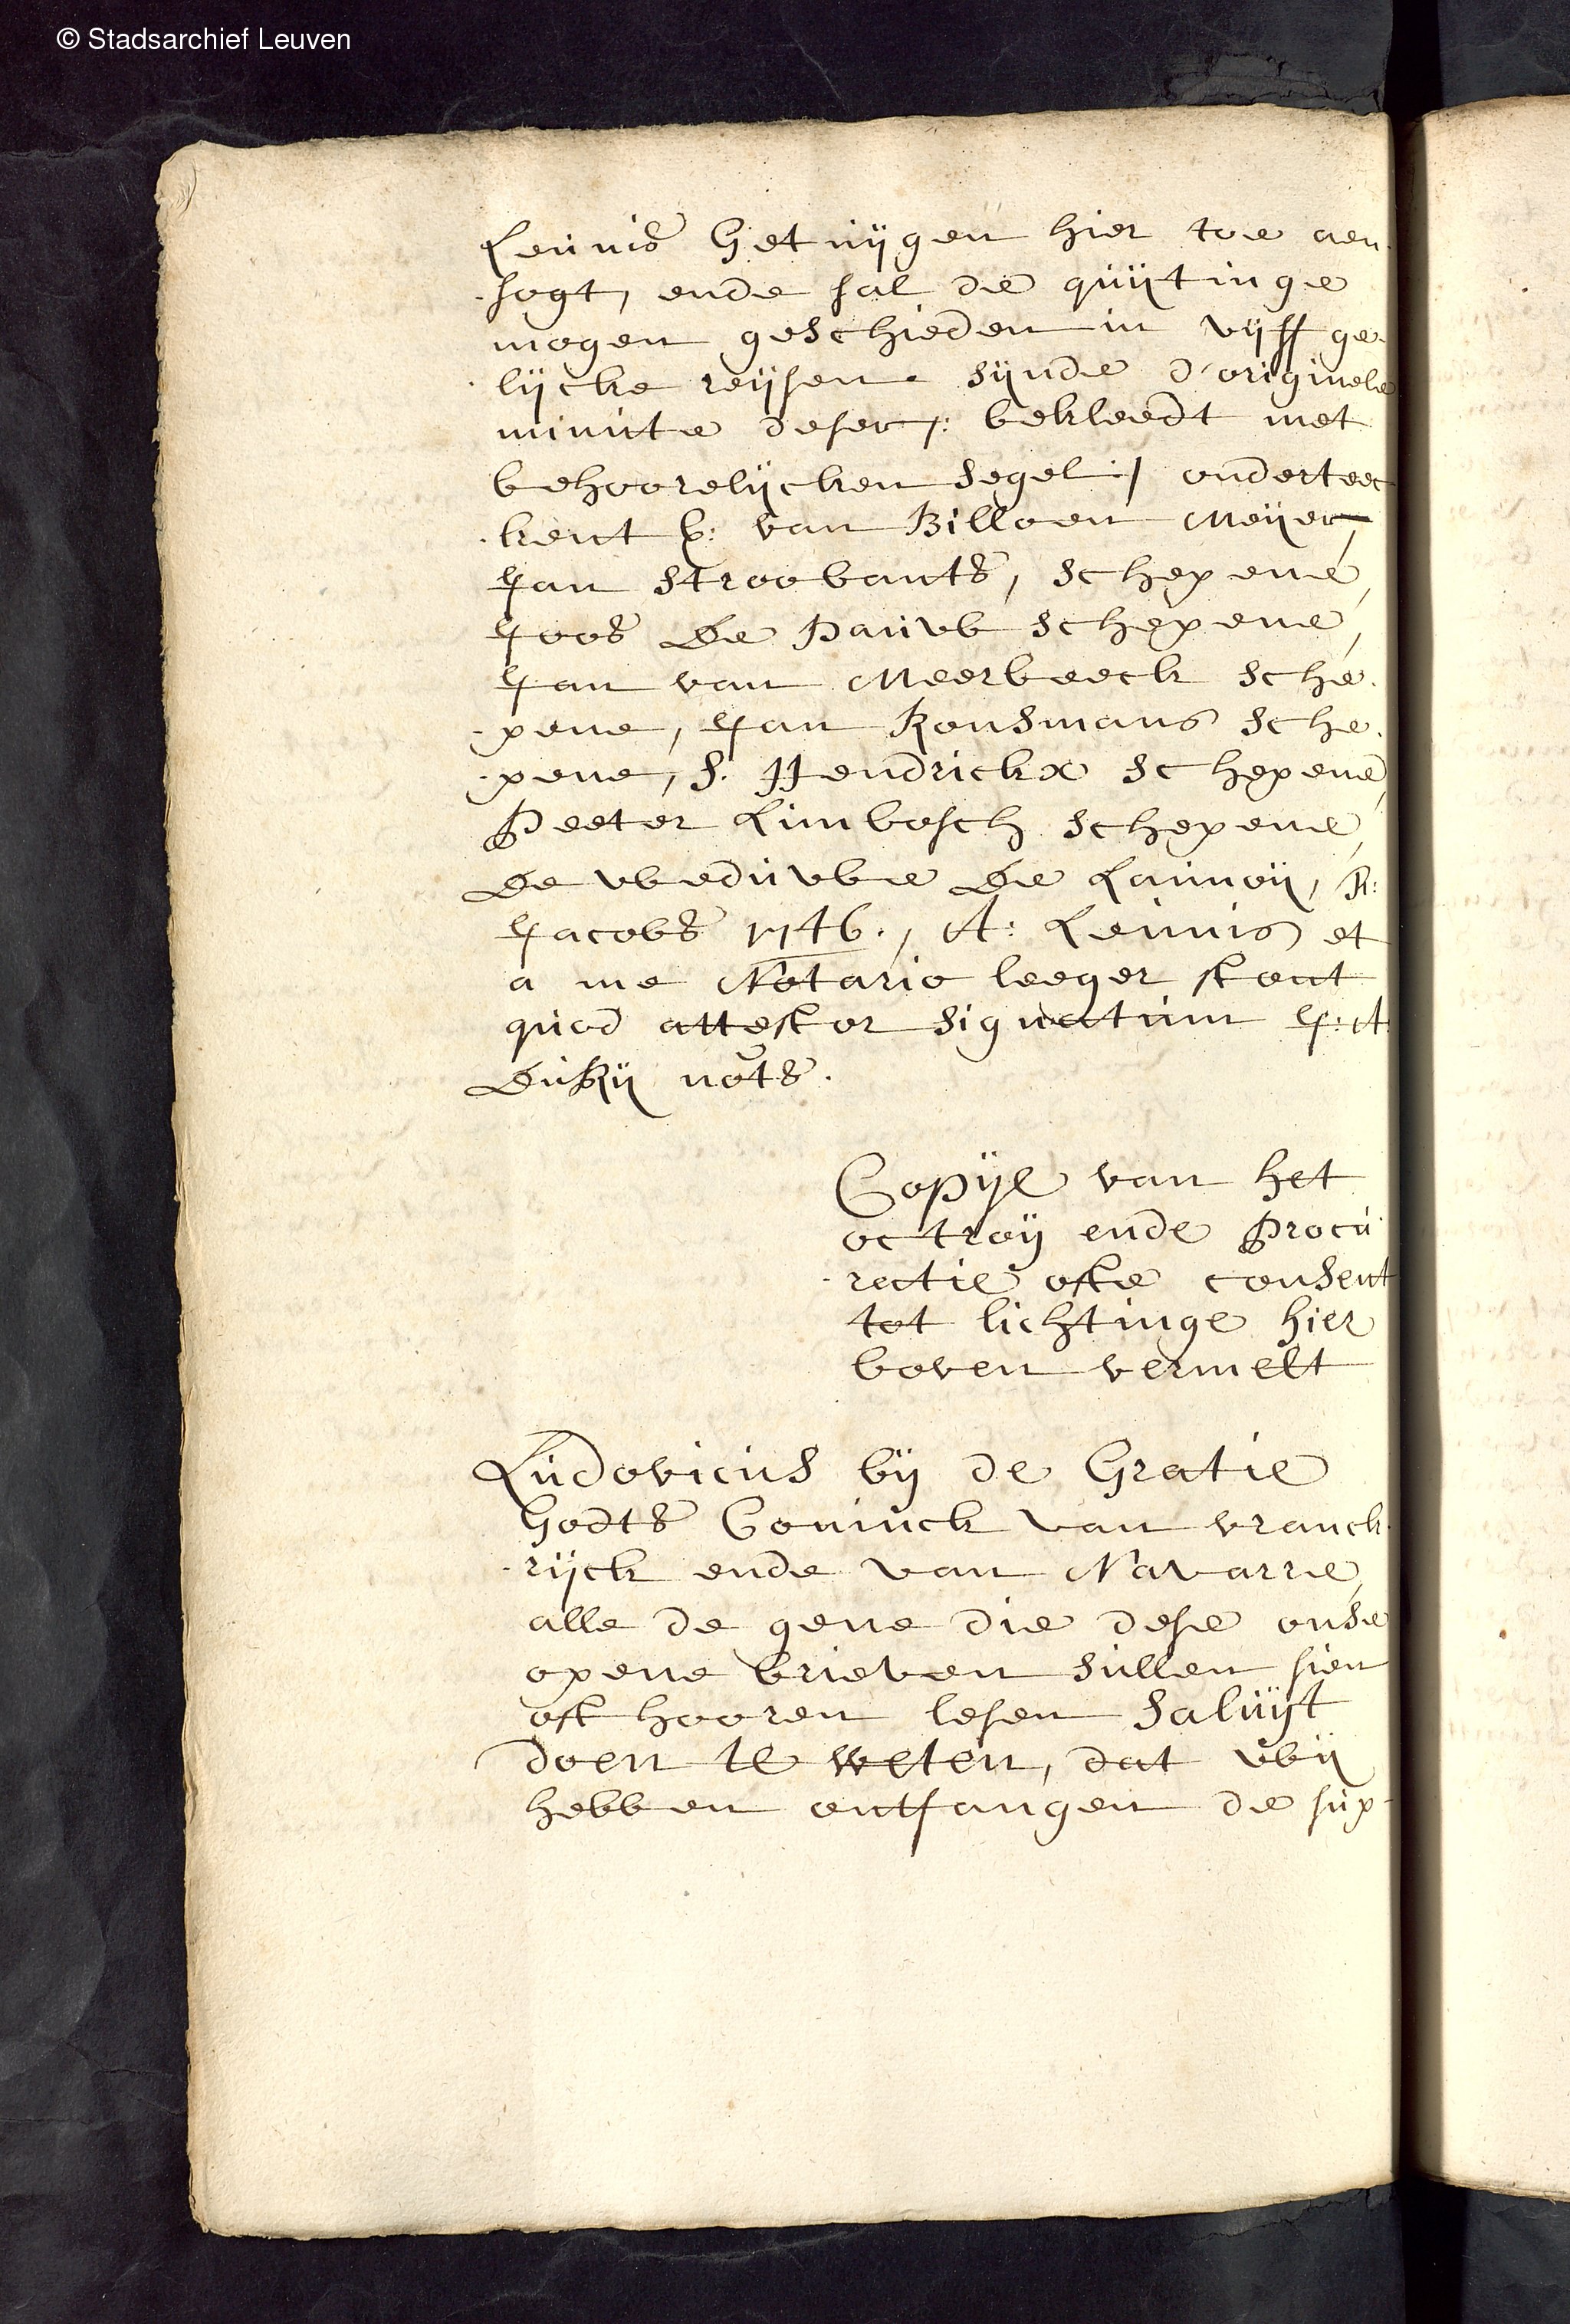 © Stadsarchief Leuven
Leunis Getuijgen hier toe aen
sogt, ende sal de quijtinge
mogen geschieden in vijff ge
lijcke reijsen. sijnde d'originele
minute deser /: bekleedt met
behoorelijcken segel :/ onderteec
kent van Billoen Meijer,
Jan Stroobants, schepene,
Joos De Pauw schepene,
Jan van Meerbeeck sche
pene, Jan Ronsmans sche
pene, S. Hendrickx schepene,
Peeter Limbosch schepene,
De weduwe De Launoij,
Jacobs 1746., A: Leunis et
a me Notario leeger stont
quod attestor signatum J: A:
nots.
Copije van het
octroij ende procu
ratie ofte consent
tot lichtinge hier
boven vermelt
Ludovicus bij de Gratie
Godts Coninck van vranck
rijck ende van Navarre,
alle de gene die dese onse
opene brieven sullen sien
oft hooren lesen Saluijt
doen te weten, dat wij
hebben ontfangen de sup